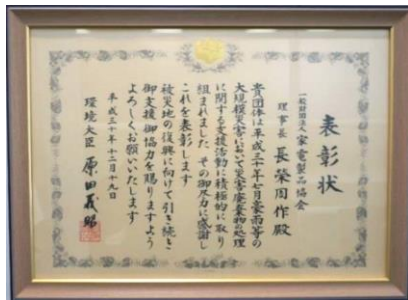 表彰状
一般財団法人 家電製品協会
理事長 長榮周作殿
貴団体は平成三十年七月豪雨等の
大規模災害において災害廃棄物の処理
に関する支援活動に積極的に取り
組まれました その御尽力に感謝し
これを表彰します
被災地の復興に向けて引き続き
御支援 御協力を賜りますよう
よろしくお願いいたします
平成三十年十二月十九日
環境大臣 原田義昭